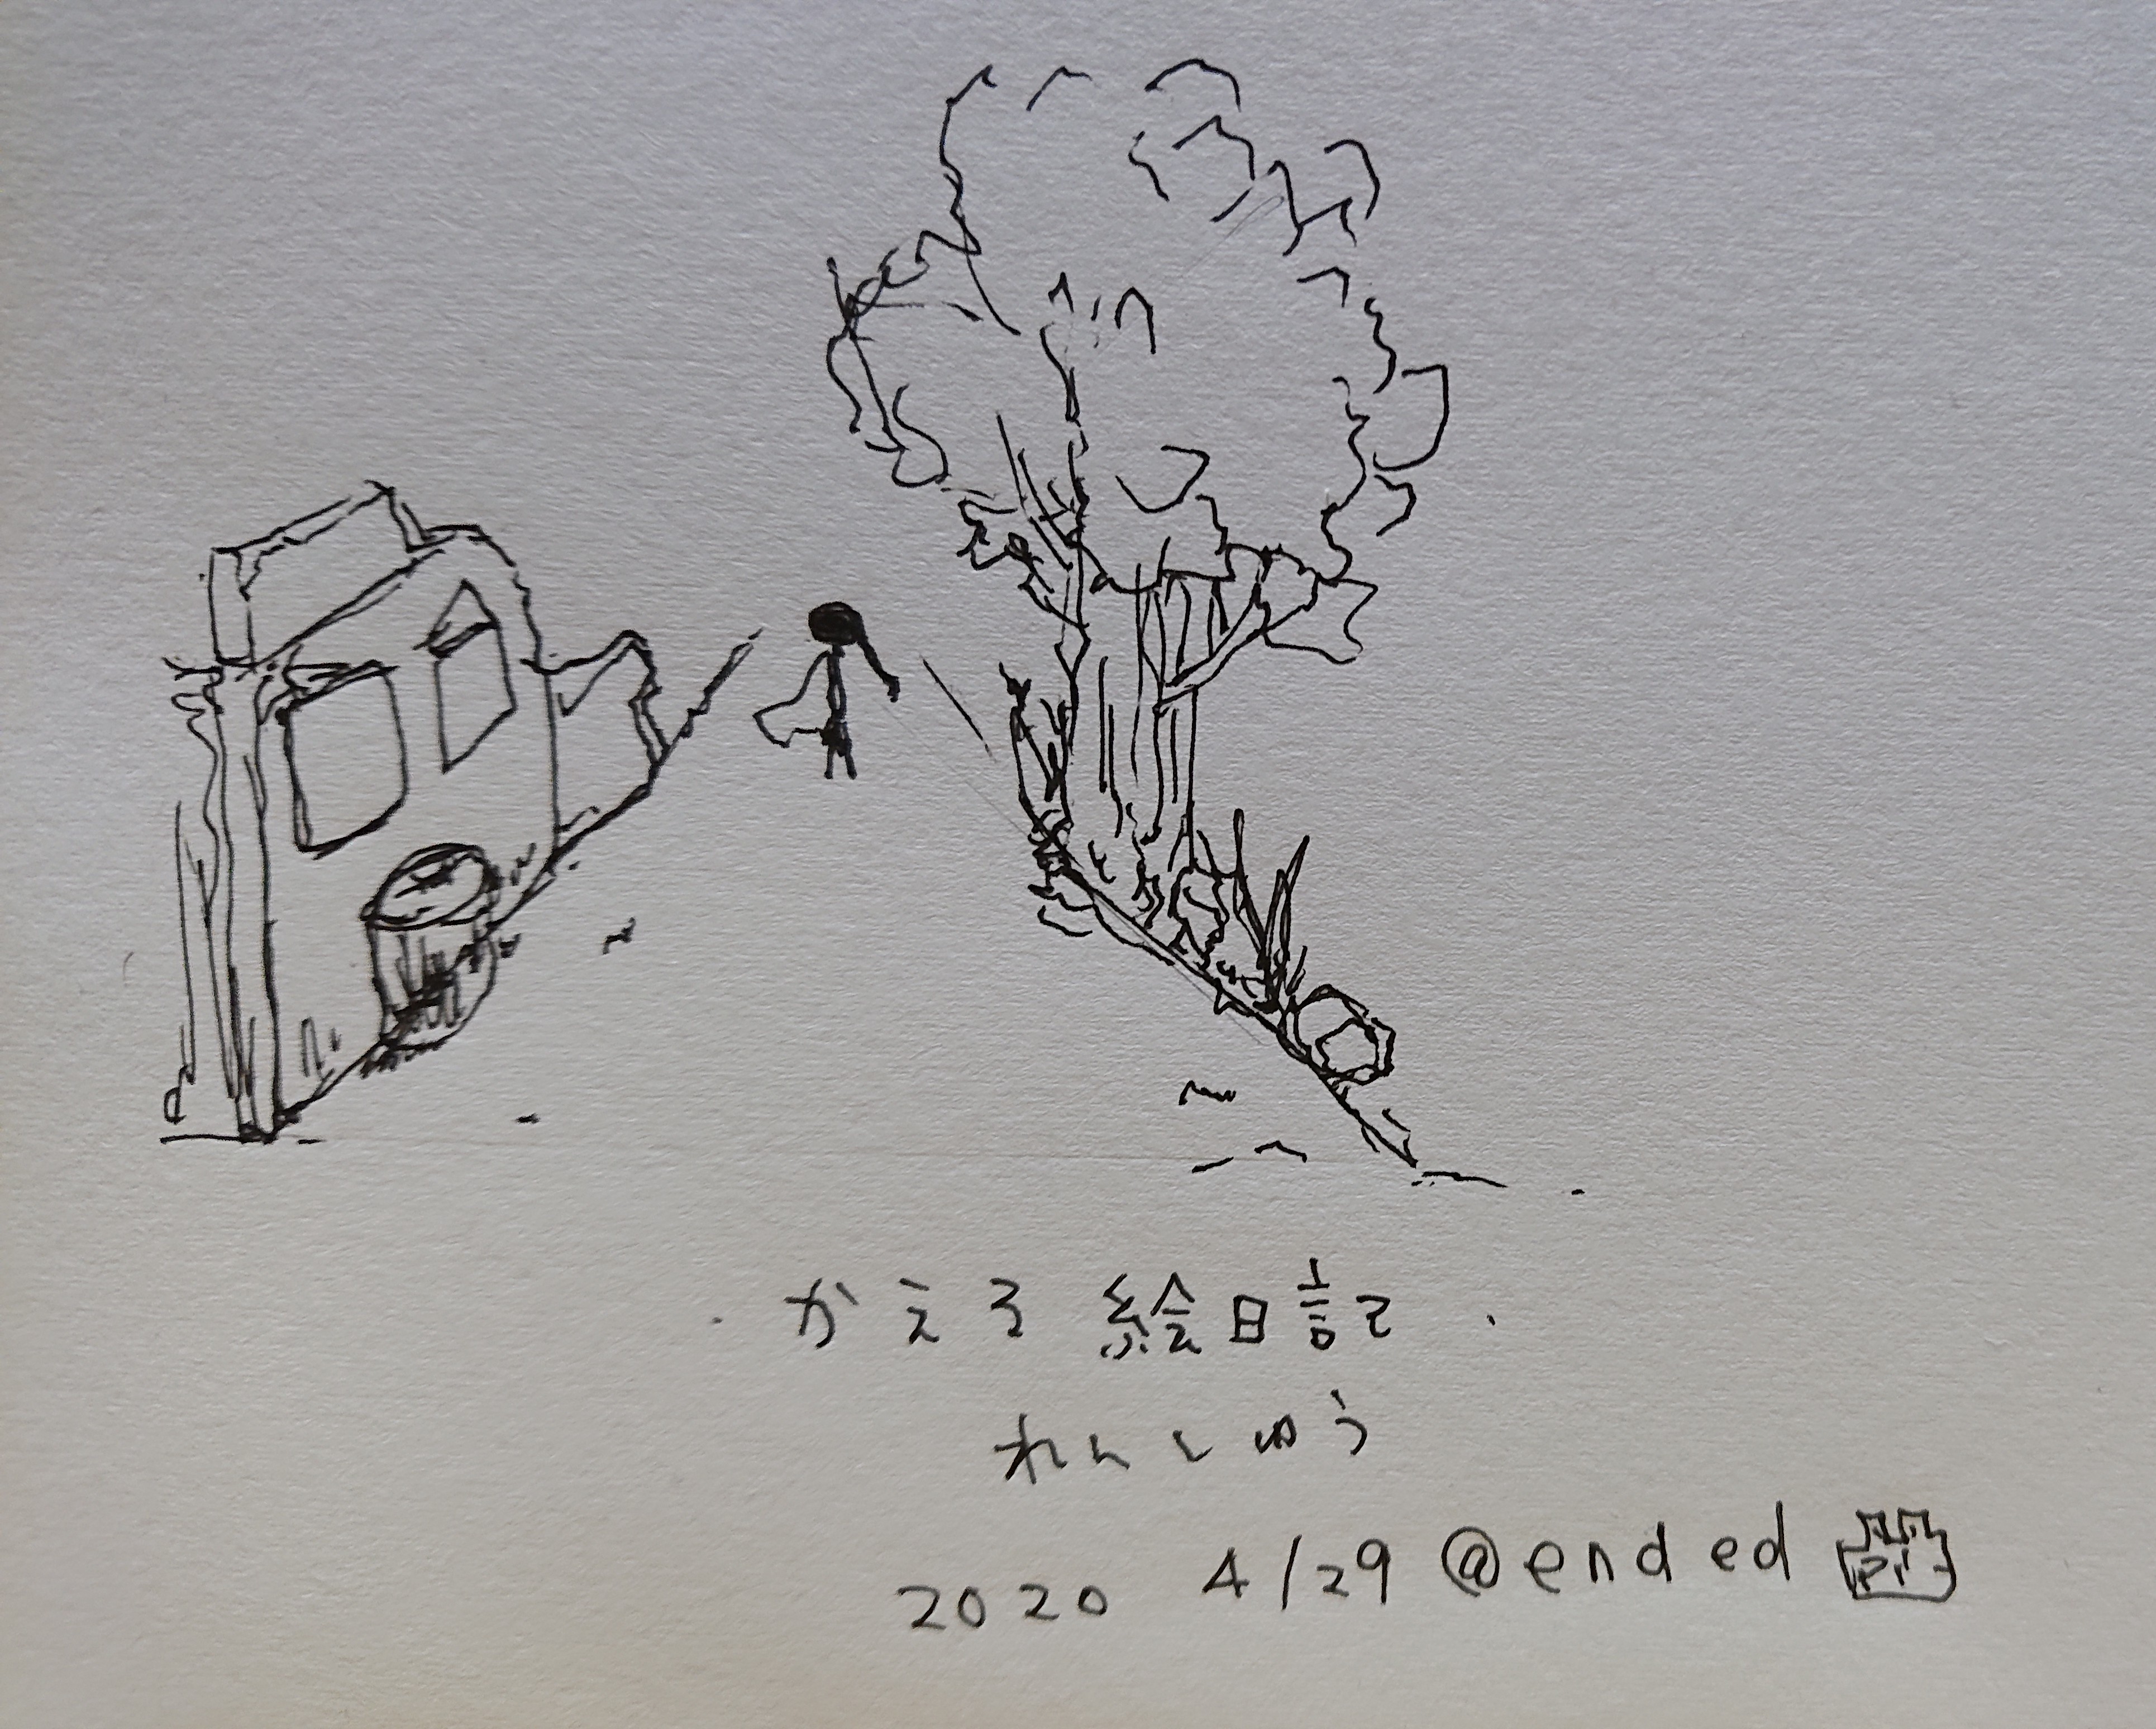 かえる 絵日記
れんしゅう
2020 4/29 @ended